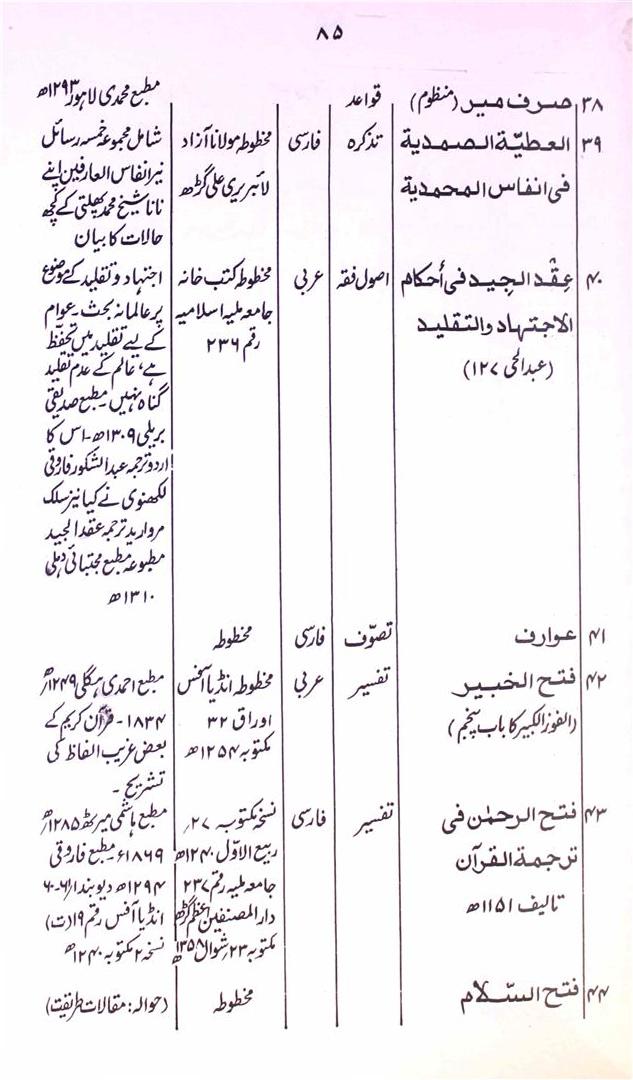 ۸۵
۳۸ صرف میر (منظوم) قواعد مطبع محمدی لاہور ۱۲۹۳ھ
۳۹ العطیّة الصمدیة تذکرہ فارسی مخطوطہ مولانا آزاد شامل مجموعہ خمسہ رسائل
فی انفاس المحمدیة لائبریری علی گڑھ نیز انفاس العارفین اپنے
نانا شیخ محمد پھلتی کے کچھ
حالات کا بیان
۴۰ عِقْد الجِید فی أحکام اصول فقہ عربی مخطوطہ کتب خانہ اجتہاد و تقلید کے موضوع
الاجتہاد والتقلید جامعہ ملیہ اسلامیہ پر عالمانہ بحث۔ عوام
(عبدالحی ۱۲۷) رقم ۲۳۶ کے لیے تقلید میں تحفّظ
ہے، عالم کے عدم تقلید
گناہ نہیں۔ مطبع صدیقی
بریلی ۱۳۰۹ھ۔ اس کا
اردو ترجمہ عبدالشکور فاروقی
لکھنوی نے کیا نیز سلک
مروارید ترجمہ عقد الجید
مطبوعہ مطبع مجتبائی دہلی
۱۳۱۰ھ
۴۱ عوارف تصوّف فارسی مخطوطہ
۴۲ فتح الخبیر تفسیر عربی مخطوطہ انڈیا آفس مطبع احمدی ہگلی ۱۲۴۹ھ/
(الفوز الکبیر کا باب پنجم) اوراق ۳۲ ۱۸۳۴۔ قرآن کریم کے
مکتوبہ ۱۲۵۴ھ بعض غریب الفاظ کی
تشریح۔
۴۳ فتح الرحمٰن فی تفسیر فارسی نسخہ مکتوبہ ۲۷؍ مطبع ہاشمی میرٹھ ۱۲۸۵ھ/
ترجمة القرآن ربیع الاوّل ۱۲۴۰ھ ۱۸۶۹ء۔ مطبع فاروقی
تالیف ۱۱۵۱ھ جامعہ ملیہ رقم ۲۳۷ ۱۲۹۴ھ دیوبند ۶۱-۶۰
دارالمصنفین اعظم گڑھ انڈیا آفس رقم ۱۹ (ت)
مکتوبہ ۲۳؍ شوال ۱۳۵۸ھ نسخہ ۲ مکتوبہ ۱۲۴۰ھ
۴۴ فتح السّلام مخطوطہ (حوالہ: مقالات طریقت)